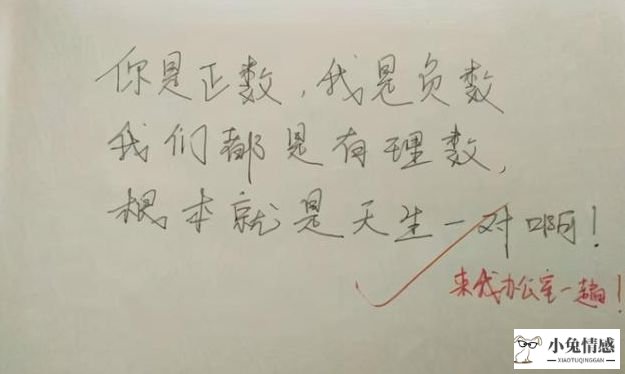 你是正数，我是负数
我们都是有理数，
根本就是天生一对啊！
来我办公室一趟！
小兔情感
XIAOTUQINGGAN